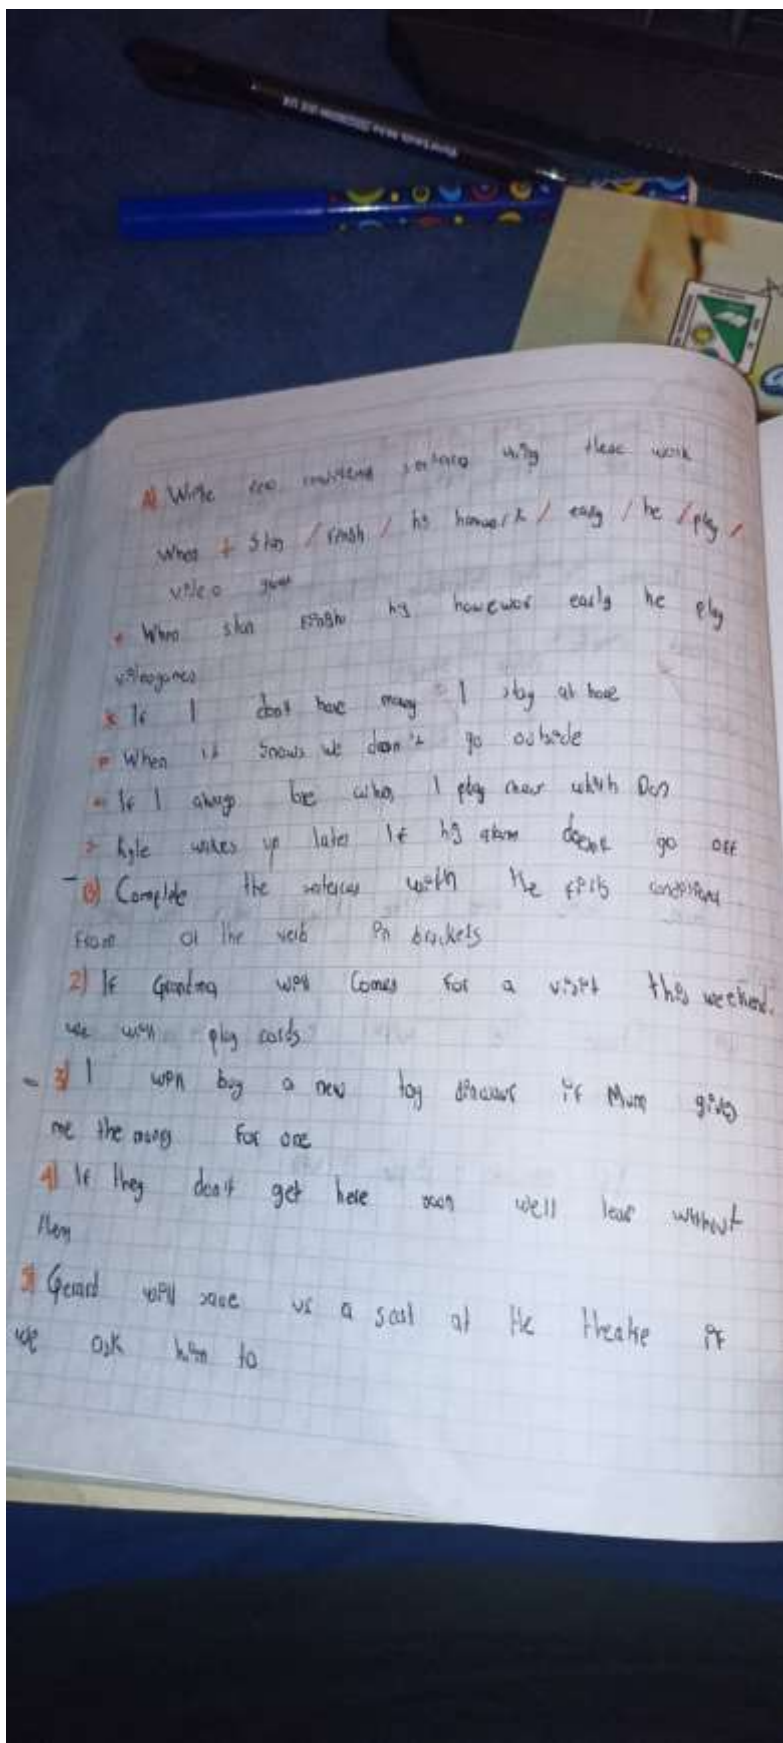 A) Write zero conditional sentences using these work
When + Stan / finish / his homework / early / he / play /
video games
When stan finish his howewor early he play
videogames
If I don't have money I stay at home
When it snows we doon't go outside
If I always lose when I play chess with Don
Kyle wakes up later If his alarm doesnt go off
B) Complete the sentences with the first conditional
From of the verb in brackets
2) If Grandma will Comes For a visit this weekend.
we will play cards
3) I will buy a new toy dinosaur if Mum gives
me the money For one
4) If they don't get here soon we'll leave without
them
5) Gerard will save us a seat at the theatre if
we ask him to